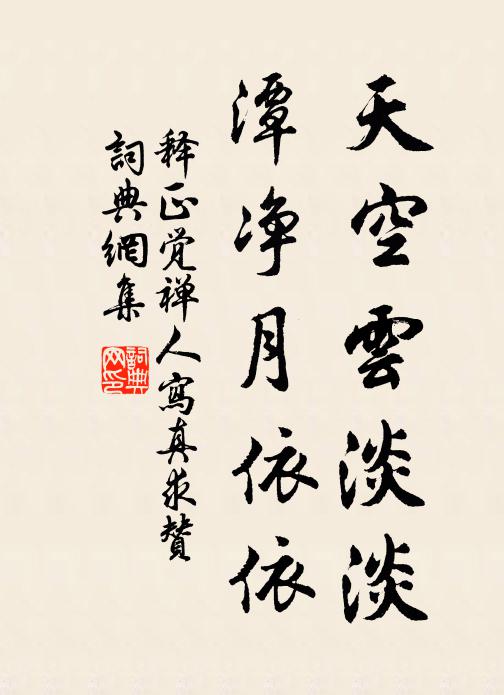 天空雲淡淡
潭净月依依
释正觉禅人寫真求贊
詞典網集
詞典网印